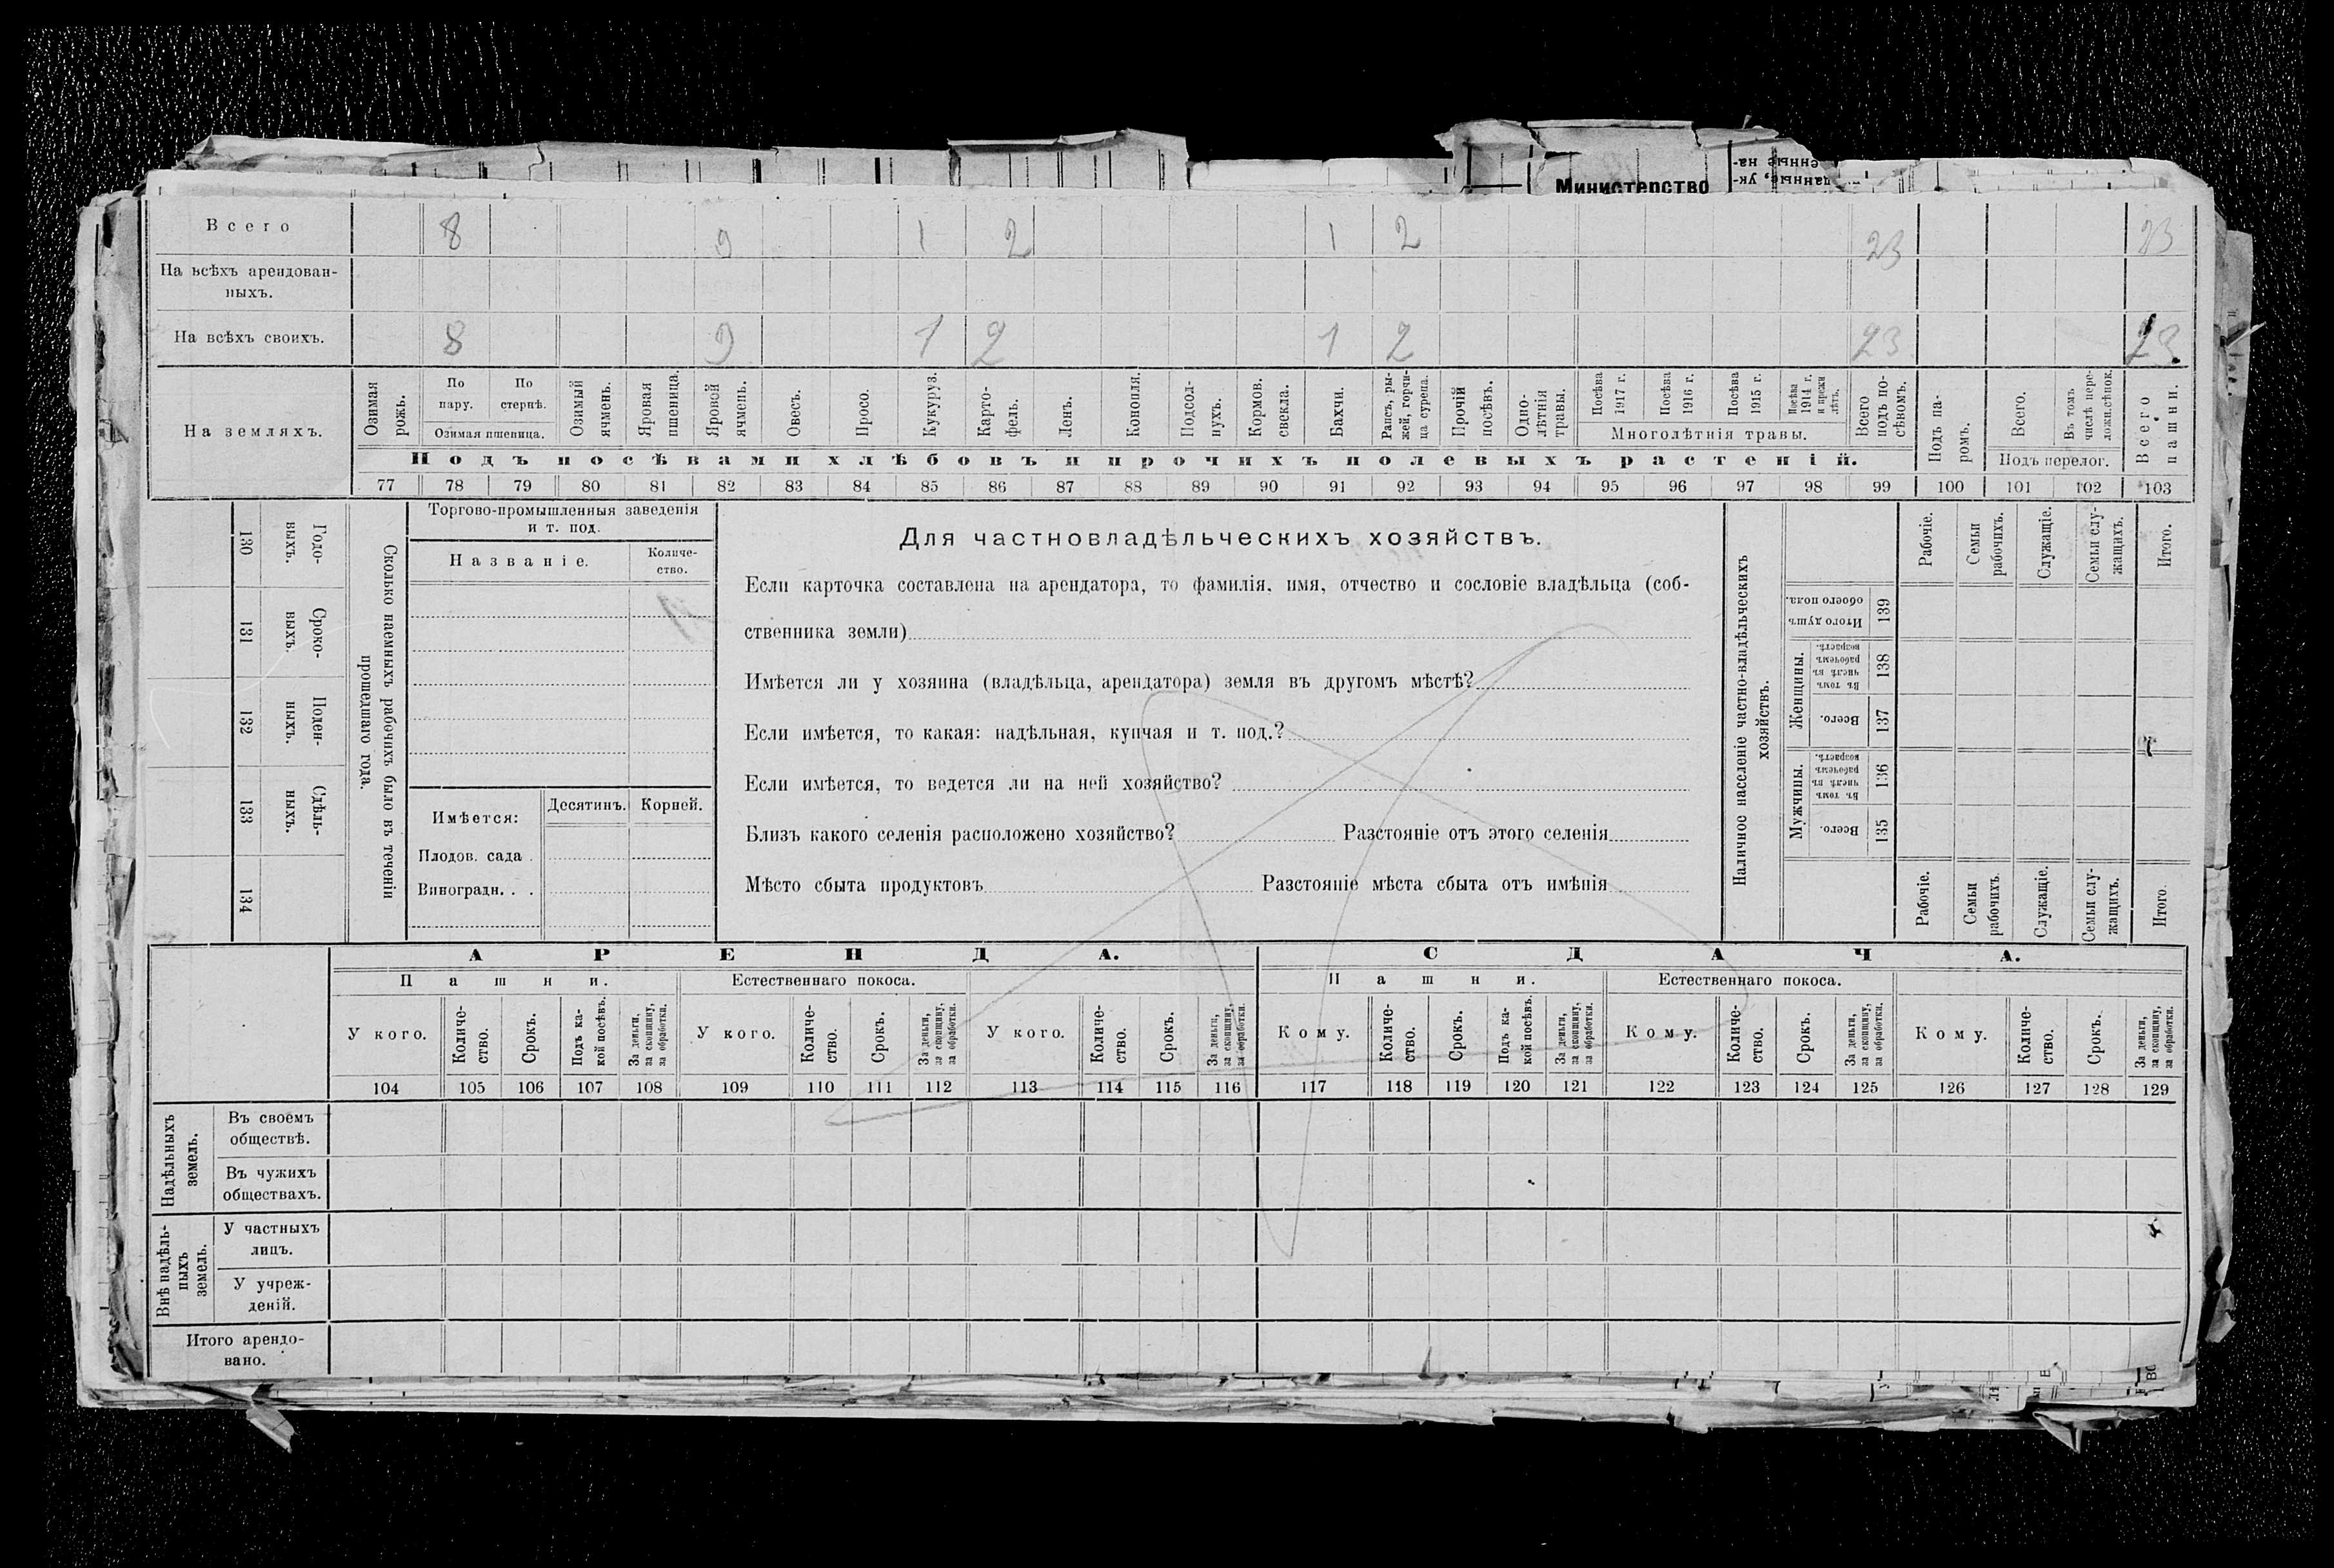 Министерство
Всего 8 9 1 2 1 2 23 23
На всѣхъ арендован-
ныхъ.
На всѣхъ своихъ. 8 9 1 2 1 2 23 23
На земляхъ.
Озимая рожь.
По пару.
По стернѣ.
Озимая пшеница.
Озимый ячмень.
Яровая пшеница.
Яровой ячмень.
Овесъ.
Просо.
Кукуруз.
Карто-
фель.
Ленъ.
Конопля.
Подсол-
нухъ.
Кормов.
свекла.
Бахчи.
Рапсъ, ры-
жей, горчи-
ца сурепа.
Прочій
посѣвъ.
Одно-
лѣтнія
травы.
Посѣва
1917 г.
Посѣва
1916 г.
Посѣва
1915 г.
Посѣва
1914 г.
и прежн
лѣтъ.
Многолѣтнія травы.
Всего
подъ по-
сѣвомъ.
Подъ па-
ромъ.
Всего.
Въ томъ
числѣ пере-
ложн.сѣнок.
Подъ перелог.
Всего
пашни.
Подъ посѣвами хлѣбовъ и прочихъ полевыхъ растеній.
77 78 79 80 81 82 83 84 85 86 87 88 89 90 91 92 93 94 95 96 97 98 99 100 101 102 103
130 Годо-
выхъ.
131 Сроко-
ныхъ.
132 Поден-
ныхъ.
133 Сдѣль-
ныхъ.
134
Сколько наемныхъ рабочихъ было въ теченіи
прошедшаго года.
Торгово-промышленныя заведенія
и т. под.
Названіе.
Количе-
ство.
Имѣется:
Десятинъ.
Корней.
Плодов. сада .
Виноградн. . .
Для частновладѣльческихъ хозяйствъ.
Если карточка составлена на арендатора, то фамилія, имя, отчество и сословіе владѣльца (соб-
ственника земли)
Имѣется ли у хозяина (владѣльца, арендатора) земля въ другомъ мѣстѣ?
Если имѣется, то какая: надѣльная, купчая и т. под.?
Если имѣется, то ведется ли на ней хозяйство?
Близъ какого селенія расположено хозяйство? Разстояніе отъ этого селенія
Мѣсто сбыта продуктовъ Разстояніе мѣста сбыта отъ имѣнія
Наличное населеніе частно-владѣльческихъ
хозяйствъ.
Рабочіе.
Семьи
рабочихъ.
Служащіе.
Семьи слу-
жащихъ.
Итого.
Итого душъ
обоего пола.
139
Женщины.
Въ томъ
числѣ въ
рабочемъ
возрастѣ.
138
Всего.
137
Мужчины.
Въ томъ
числѣ въ
рабочемъ
возрастѣ.
136
Всего.
135
Рабочіе.
Семьи
рабочихъ.
Служащіе.
Семьи слу-
жащихъ.
Итого.
АРЕНДА.
СДАЧА.
Пашни.
Естественнаго покоса.
Пашни.
Естественнаго покоса.
У кого.
Количе-
ство.
Срокъ.
Подъ ка-
кой посѣвъ.
За деньги,
за скопщину,
за обработки.
У кого.
Количе-
ство.
Срокъ.
За деньги,
за скопщину,
за обработки.
У кого.
Количе-
ство.
Срокъ.
За деньги,
за скопщину,
за обработки.
Кому.
Количе-
ство.
Срокъ.
Подъ ка-
кой посѣвъ.
За деньги,
за скопщину,
за обработки.
Кому.
Количе-
ство.
Срокъ.
За деньги,
за скопщину,
за обработки.
Кому.
Количе-
ство.
Срокъ.
За деньги,
за скопщину,
за обработки.
104 105 106 107 108 109 110 111 112 113 114 115 116 117 118 119 120 121 122 123 124 125 126 127 128 129
Надѣльныхъ
земель.
Въ своемъ
обществѣ.
Въ чужихъ
обществахъ.
Внѣ надѣль-
ныхъ
земель.
У частныхъ
лицъ.
У учреж-
деній.
Итого арендо-
вано.